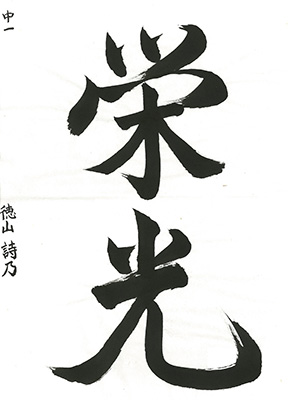 栄光
中一
徳山 詩乃